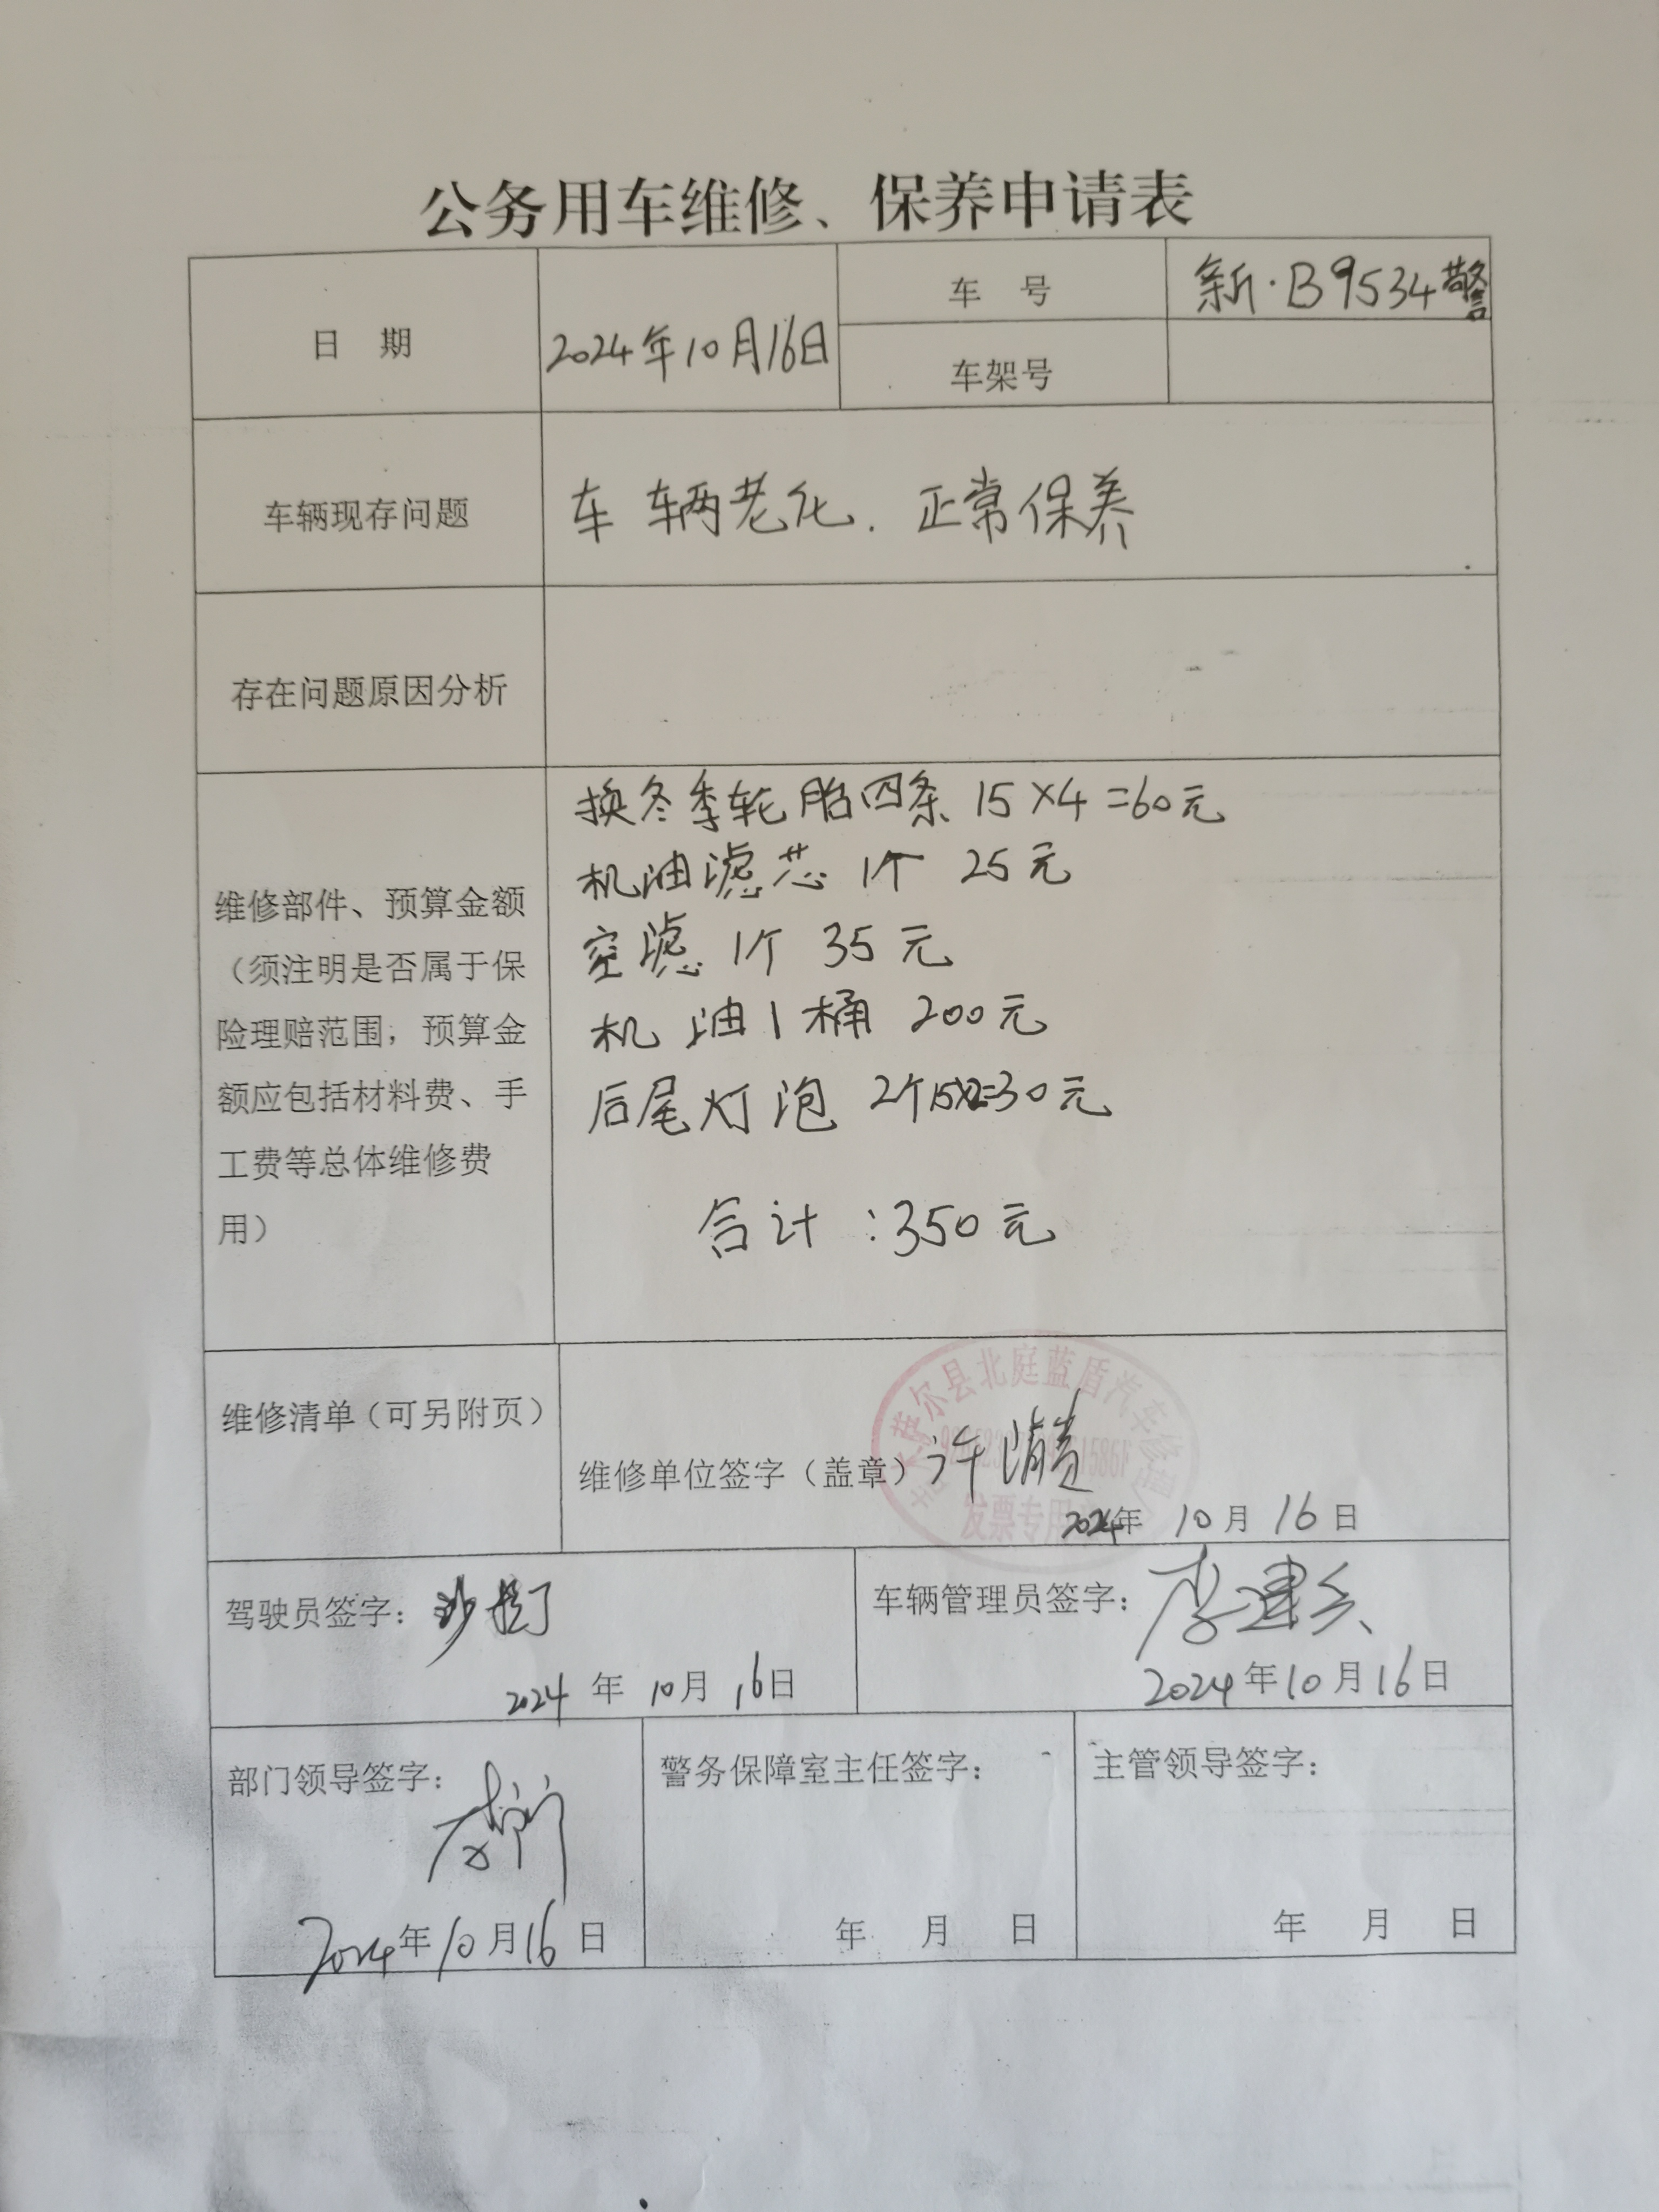 公务用车维修、保养申请表
日 期
2024年10月16日
车 号
新·B9534警
车架号
车辆现存问题
车 辆老化. 正常保养
存在问题原因分析
维修部件、预算金额
（须注明是否属于保
险理赔范围，预算金
额应包括材料费、手
工费等总体维修费
用）
换冬季轮胎四条 15×4=60元
机油滤芯 1个 25元
空滤 1个 35元
机油1桶 200元
后尾灯泡 2个15×2=30元
合计:350元
维修清单（可另附页）
维修单位签字（盖章）
萨尔县北庭蓝盾汽车修理
发票专用
2024年 10月 16日
驾驶员签字：
2024 年 10月 16日
车辆管理员签字：
2024年10月16日
部门领导签字：
2024年10月16日
警务保障室主任签字：
年 月 日
主管领导签字：
年 月 日